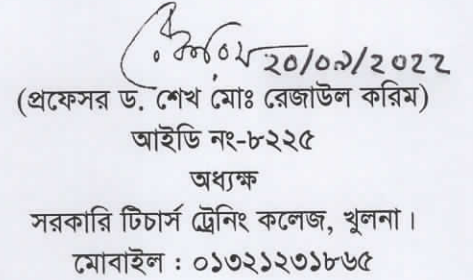 ২০/০৯/2022
(প্রফেসর ড. শেখ মোঃ রেজাউল করিম)
আইডি নং-৮২২৫
অধ্যক্ষ
সরকারি টিচার্স ট্রেনিং কলেজ, খুলনা।
মোবাইল : ০১৩২১২৩১৮৬৫